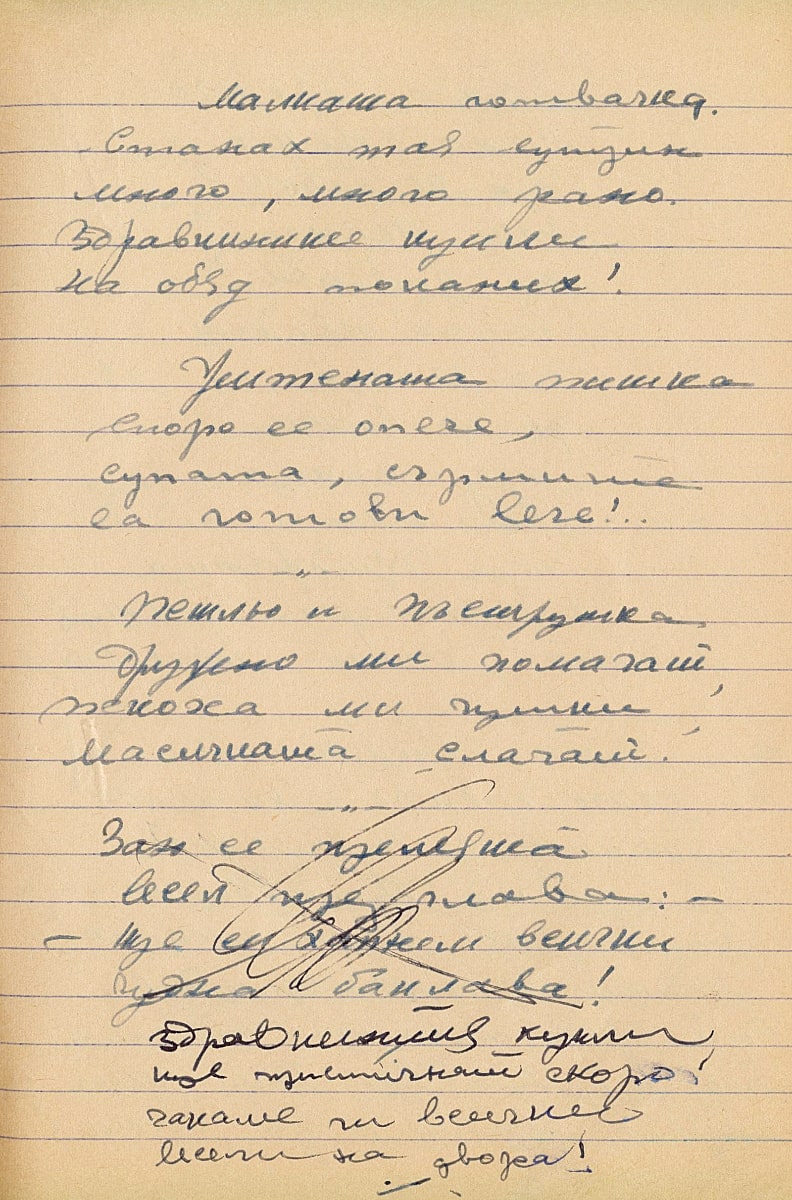 Малката готвачка.
Станах тая сутрин
много, много рано.
Здравкините кукли
на обяд поканих!
Улитената питка
скоро се опече,
супата, сърмите
са готови вече!..
—„—
Петльо и Пъструшка
дружно ми помагат,
ми
масичката слагат!
—„—
Зай се
весел глава: —
— ще си хапнем всички
чудна баклава!
Здравкините кукли
ще пристигнат скоро!
чакаме ги всички
весели на двора!